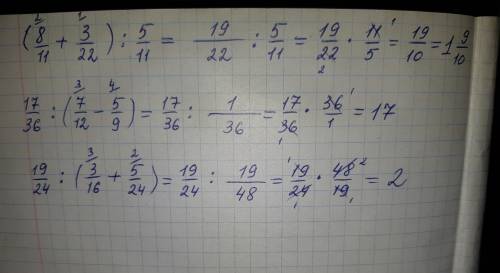 (8/11 ² + 3/22 ¹) : 5/11 = 19/22 : 5/11 = 19/22 ₂ · 11/5 ¹ = 19/10 = 1 9/10
17/36 : (7/12 ³ - 5/9 ⁴) = 17/36 : 1/36 = 17/36 ₁ · 36/1 ¹ = 17
19/24 : (3/16 ³ + 5/24 ²) = 19/24 : 19/48 = ¹ 19/24 ₁ · 48/19 ² ₁ = 2